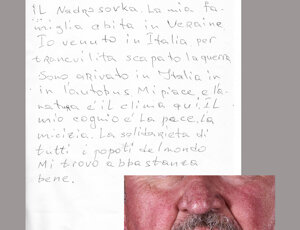 IL Nadrsovka. La mia fa-
miglia abita in Ucraine.
Io venuto in Italia per
tranquilita scapato la guerra
Sono arivato in Italia in
in l'autobus Mi piace e la
natura é il clima qui. IL
mio cognio é La pace, La
micizia. La solidarieta di
tutti i popoti del mondo
Mi trovo abbastanza
bene.